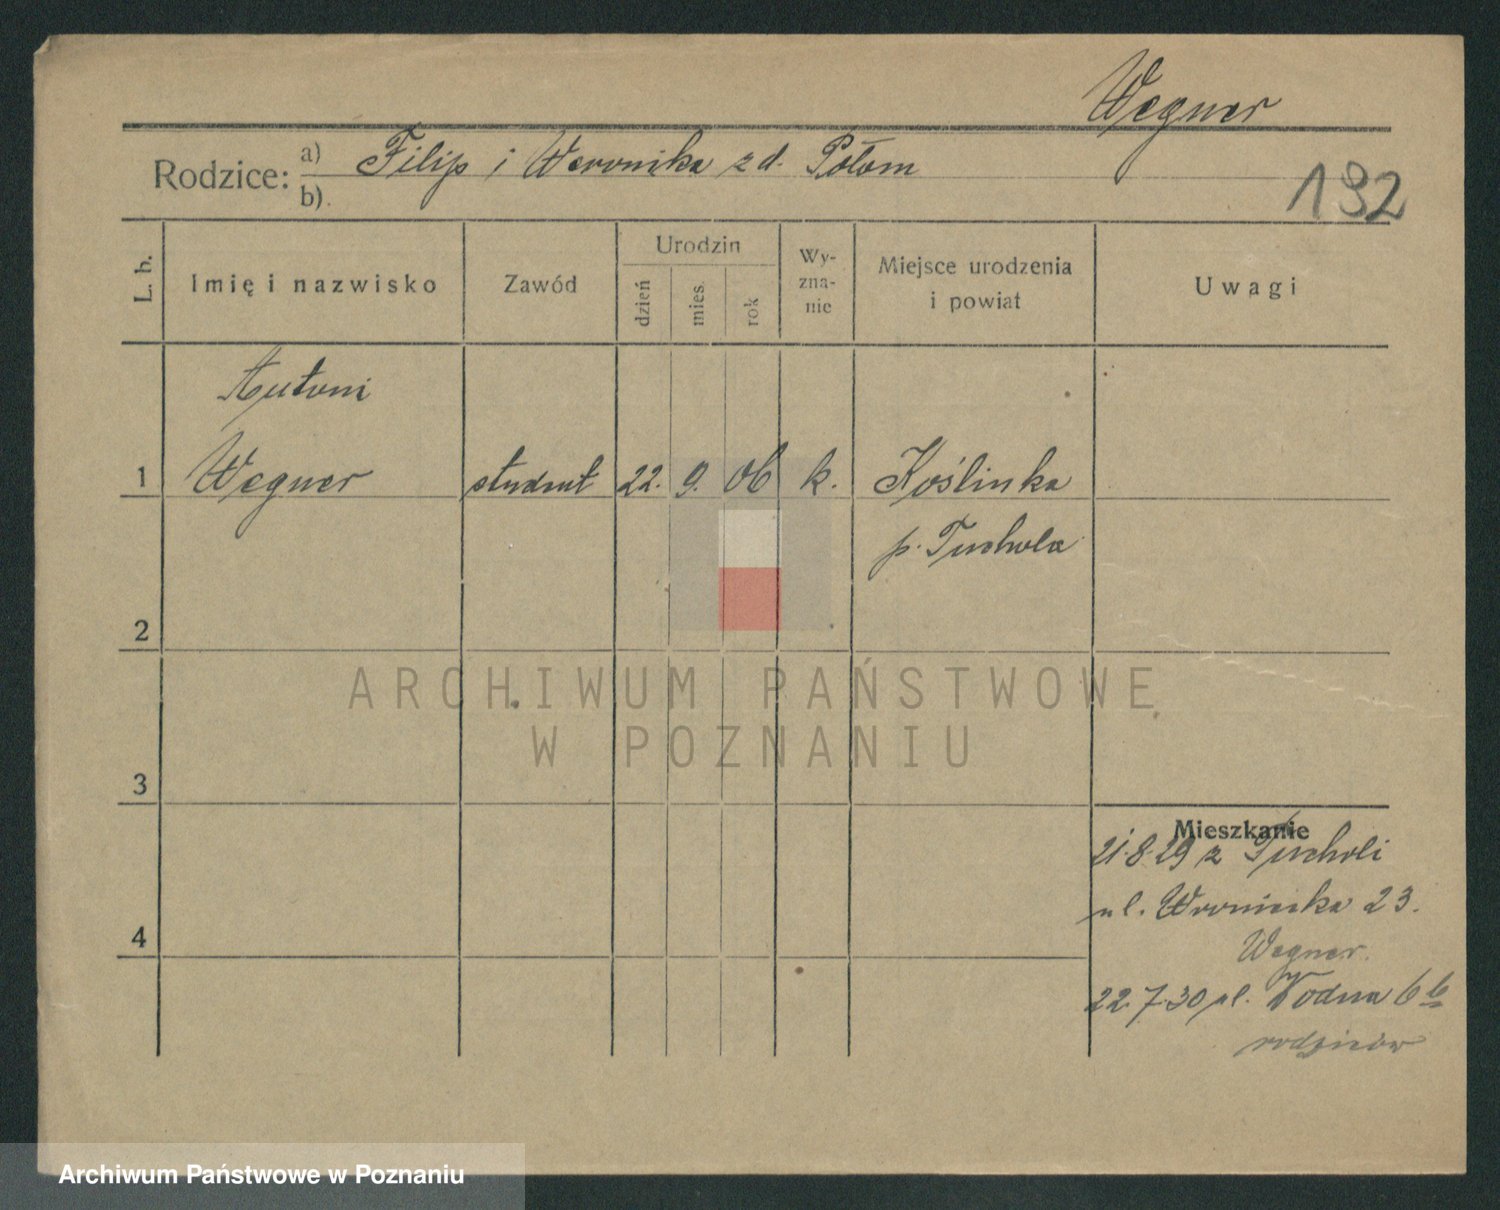 Wegner
Rodzice: a) Filip i Weronika z d. Połom
b).
192
L. b.
Imię i nazwisko
Zawód
Urodzin
dzień
mies.
rok
Wy-
zna-
nie
Miejsce urodzenia
i powiat
Uwagi
Antoni
1 Wegner student 22. 9. 06 k. Kóślinka
p. Tuchola
2
ARCHIWUM PAŃSTWOWE
W POZNANIU
3
Mieszkanie
21.8.29 z Tucholi
ul. Wroniecka 23.
4
Wegner.
22.7.30 ul. Wodna 6
rodziców
Archiwum Państwowe w Poznaniu